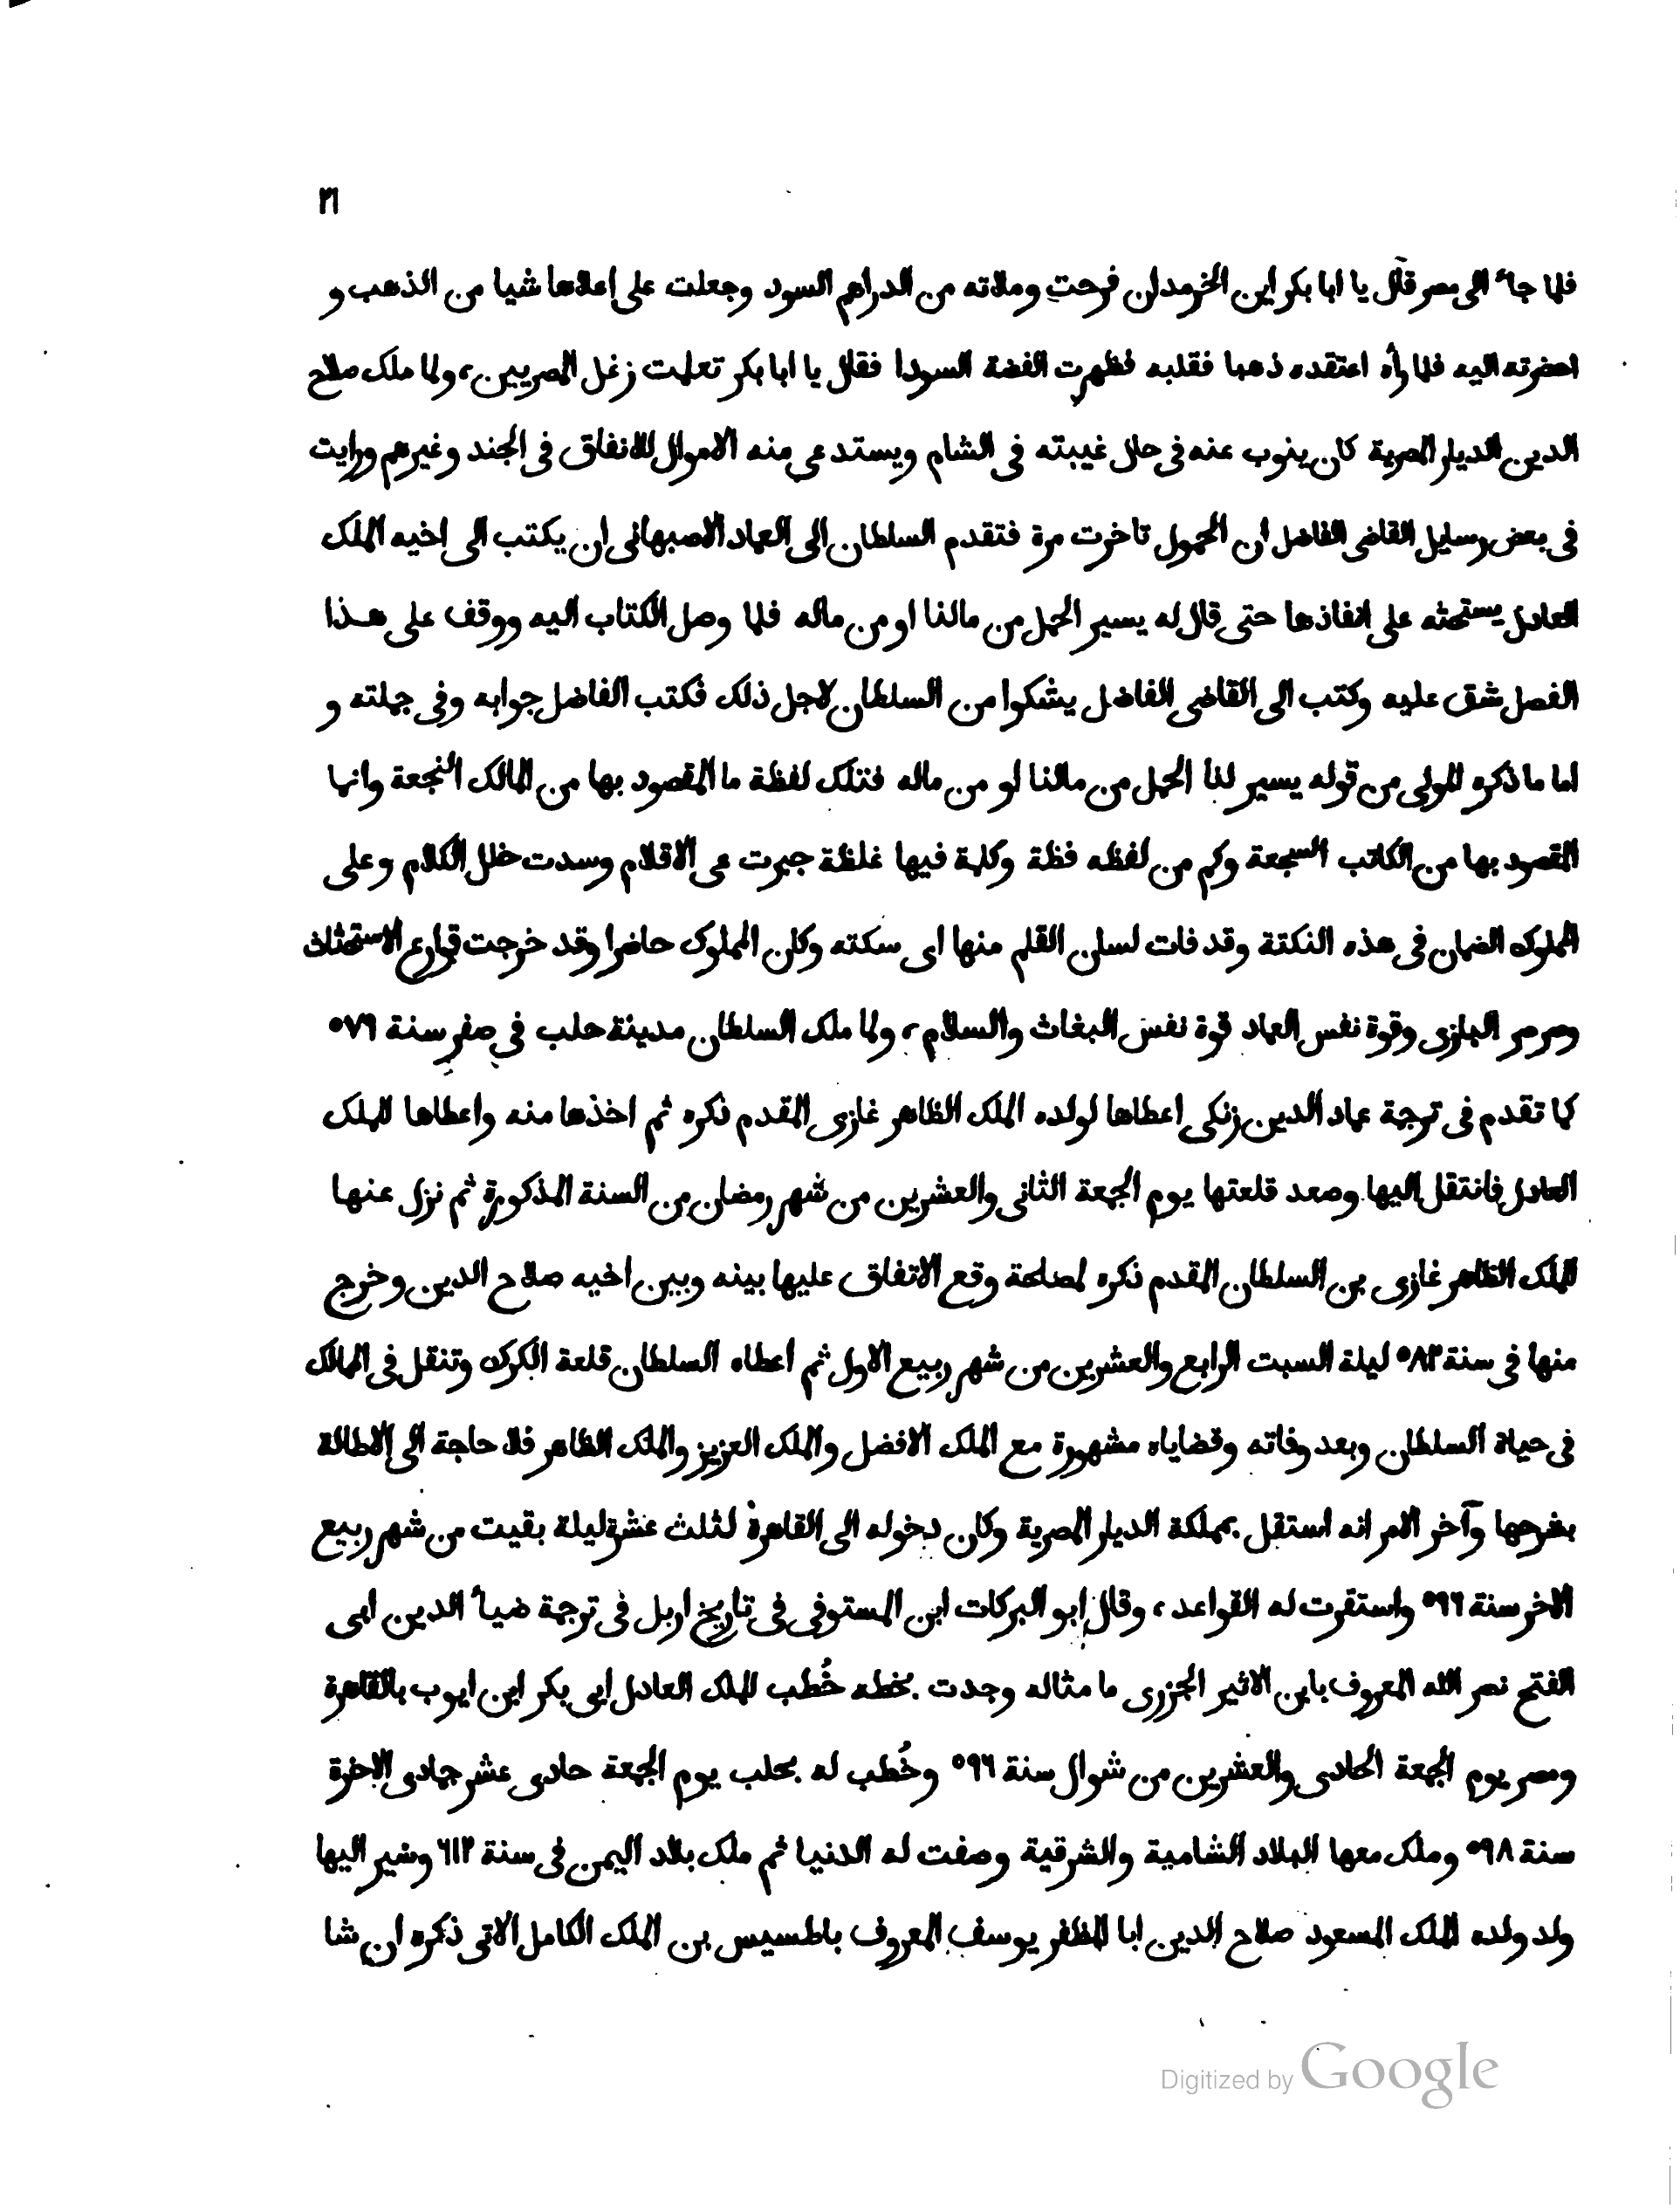 ٣١
فلما جاء الى مصر قال يا ابا بكر اين الخرمدان فرحت وملاته من الدراهم السود وجعلت على اعلاها شيا من الذهب و
احضرته اليه فلما رأه اعتقده ذهبا فقلبه فظهرت الفضة السودا فقال يا ابا بكر تعلمت زغل المصريين، ولما ملك صلاح
الدين الديار المصرية كان ينوب عنه فى حال غيبته فى الشام ويستدعى منه الاموال للانفاق فى الجند وغيرهم ورايت
فى بعض رسايل القاضى الفاضل ان الحمول تاخرت مرة فتقدم السلطان الى العماد الاصبهانى ان يكتب الى اخيه الملك
العادل يستحثه على انفاذها حتى قال له يسير الحمل من مالنا او من ماله فلما وصل الكتاب اليه ووقف على هذا
الفصل شق عليه وكتب الى القاضى الفاضل يشكوا من السلطان لاجل ذلك فكتب الفاضل جوابه وفى جملته و
اما ما ذكره المولى من قوله يسير لنا الحمل من مالنا او من ماله فتلك لفظة ما المقصود بها من المالك النجعة وانما
المقصود بها من الكاتب السجعة وكم من لفظه فظة وكلمة فيها غلظة جبرت عى الاقلام وسدت خلل الكلام وعلى
المملوك الضمان فى هذه النكتة وقد فات لسان القلم منها اى سكته وكان المملوك حاضرا وقد خرجت قوارع الاستحثاث
وصرصر البازى وقوة نفس العماد قوة نفس البغاث والسلام، ولما ملك السلطان مدينة حلب فى صفر سنة ٥٧٩
كما تقدم فى ترجمة عماد الدين زنكى اعطاها لولده الملك الظاهر غازى المقدم ذكره ثم اخذها منه واعطاها للملك
العادل فانتقل اليها وصعد قلعتها يوم الجمعة الثانى والعشرين من شهر رمضان من السنة المذكورة ثم نزل عنها
للملك الظاهر غازى بن السلطان المقدم ذكره لمصلحة وقع الاتفاق عليها بينه وبين اخيه صلاح الدين وخرج
منها فى سنة ٥٨٣ ليلة السبت الرابع والعشرين من شهر ربيع الاول ثم اعطاه السلطان قلعة الكرك وتنقل فى الممالك
فى حياة السلطان وبعد وفاته وقضاياه مشهورة مع الملك الافضل والملك العزيز والملك الظاهر فلا حاجة الى الاطالة
بشرحها وآخر الامر انه استقل بمملكة الديار المصرية وكان دخوله الى القاهرة لثلث عشرة ليلة بقيت من شهر ربيع
الاخر سنة ٥٩٦ واستقرت له القواعد، وقال ابو البركات ابن المستوفى فى تاريخ اربل فى ترجمة ضياء الدين ابى
الفتح نصر الله المعروف بابن الاثير الجزرى ما مثاله وجدت بخطه خُطب للملك العادل ابى بكر ابن ايوب بالقاهرة
ومصر يوم الجمعة الحادى والعشرين من شوال سنة ٥٩٦ وخُطب له بحلب يوم الجمعة حادى عشر جمادى الاخرة
سنة ٥٩٨ وملك معها البلاد الشامية والشرقية وصفت له الدنيا ثم ملك بلاد اليمن فى سنة ٦١٢ وسير اليها
ولد ولده الملك المسعود صلاح الدين ابا المظفر يوسف المعروف باطسيس بن الملك الكامل الاتى ذكره ان شا
Digitized by Google